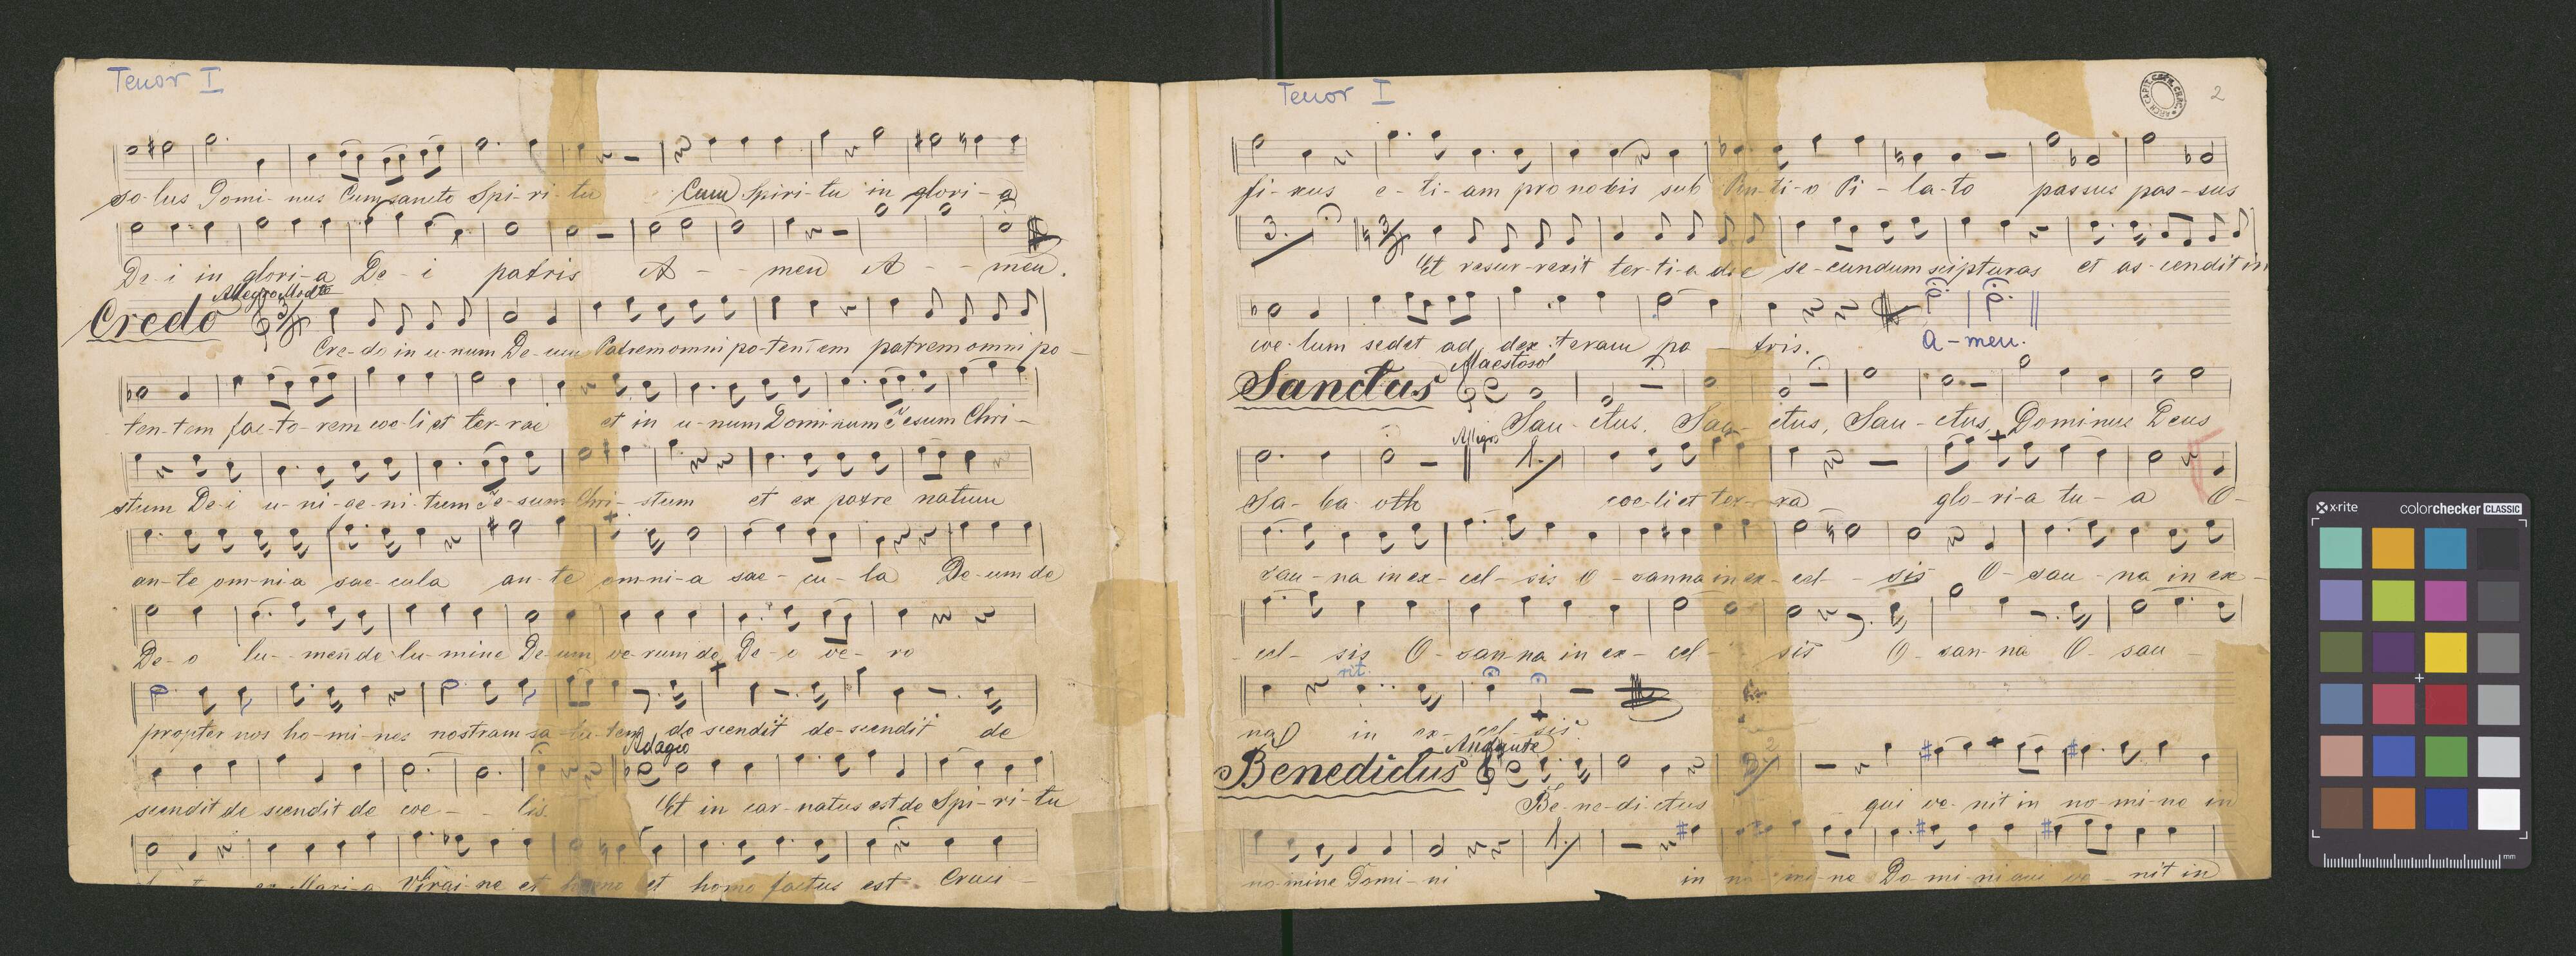 Tenor I
so-lus Domi-nus Cum sancto Spi-ri-tu Cum Spiri-tu in glori-a
De-i in glori-a De-i patris A--men A--men.
Allegro Modto
Credo Cre-do in u-num De-um Patrem omni po-tentem patrem omni po-
ten-tem fac-to-rem coe-li et ter-rae et in u-num Dominum Jesum Chri-
stum De-i u-ni-ge-ni-tum Je-sum Chri-stum et ex patre natum
an-te om-nia sae-cula an-te omni-a sae-cu-la De-um de
De-o lu--men de lu-mine De-um ve-rum de De-o ve-ro
propter nos ho-mi-nes nostram sa-lu-tem de scendit de-scendit de
Adagio
scendit de scendit de coe--lis. Et in car-natus est de Spi-ri-tu
ex Mari-a Virgi-ne et homo et homo factus est Cruci-
Tenor I
2
fi-xus e-ti-am pro nobis sub Pon-ti-o Pi-la-to passus pas-sus
3. Et resur-rexit ter-ti-a die se-cundum scipturas et as-cendit in
coe-lum sedet ad dex-teram pa-tris. A-men.
Maestoso
Sanctus San-ctus, San-ctus, San-ctus, Dominus Deus
Allegro
Sa-ba-oth 1. coe-li et ter-ra glo-ri-a tu-a O-
san-na in ex-cel-sis O-sanna in ex-cel-sis O-san-na in ex-
-cel-sis O-san-na in ex-cel-sis O-san-na O-san-
rit.
na in ex-cel-sis.
Andante
Benedictus Be-ne-di-ctus 2 qui ve-nit in no-mi-ne in
nomine Domi-ni 1. in no-mi-ne Do-mi-ni qui ve-nit in
x-rite colorchecker CLASSIC
mm